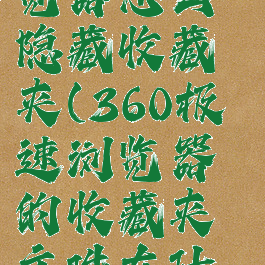 览器怎么
隐藏收藏
夹(360极
速浏览器
的收藏夹